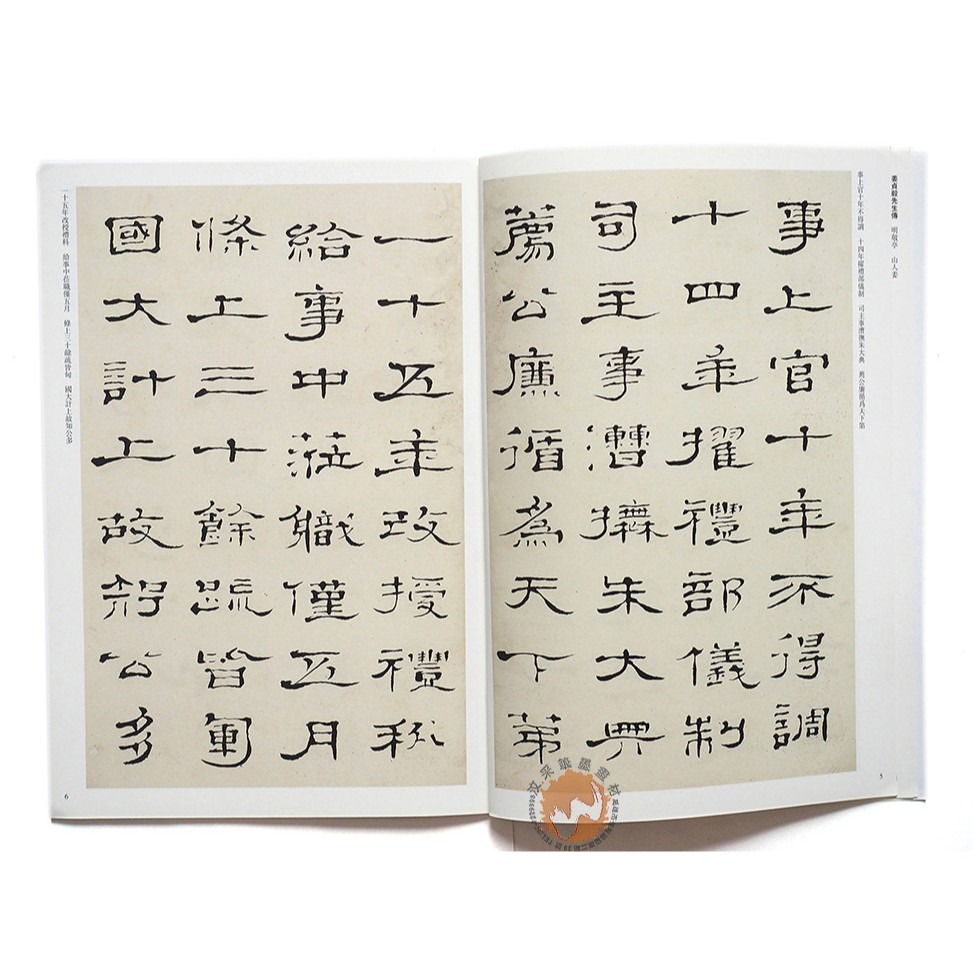 姜貞毅先生傳　明瑕亭　山人姜
事上官十年不得調　十四年擢禮部儀制　司主事漕撫朱大典　薦公廉循爲天下第
事上官十年不得調
十四年擢禮部儀制
司主事漕撫朱大典
薦公廉循為天下第
5
一十五年改授禮科
給事中蒞職僅五月
條上三十餘疏皆軍
國大計上故知公多
一十五年改授禮科　給事中蒞職僅五月　條上三十餘疏皆軍　國大計上故知公多
6